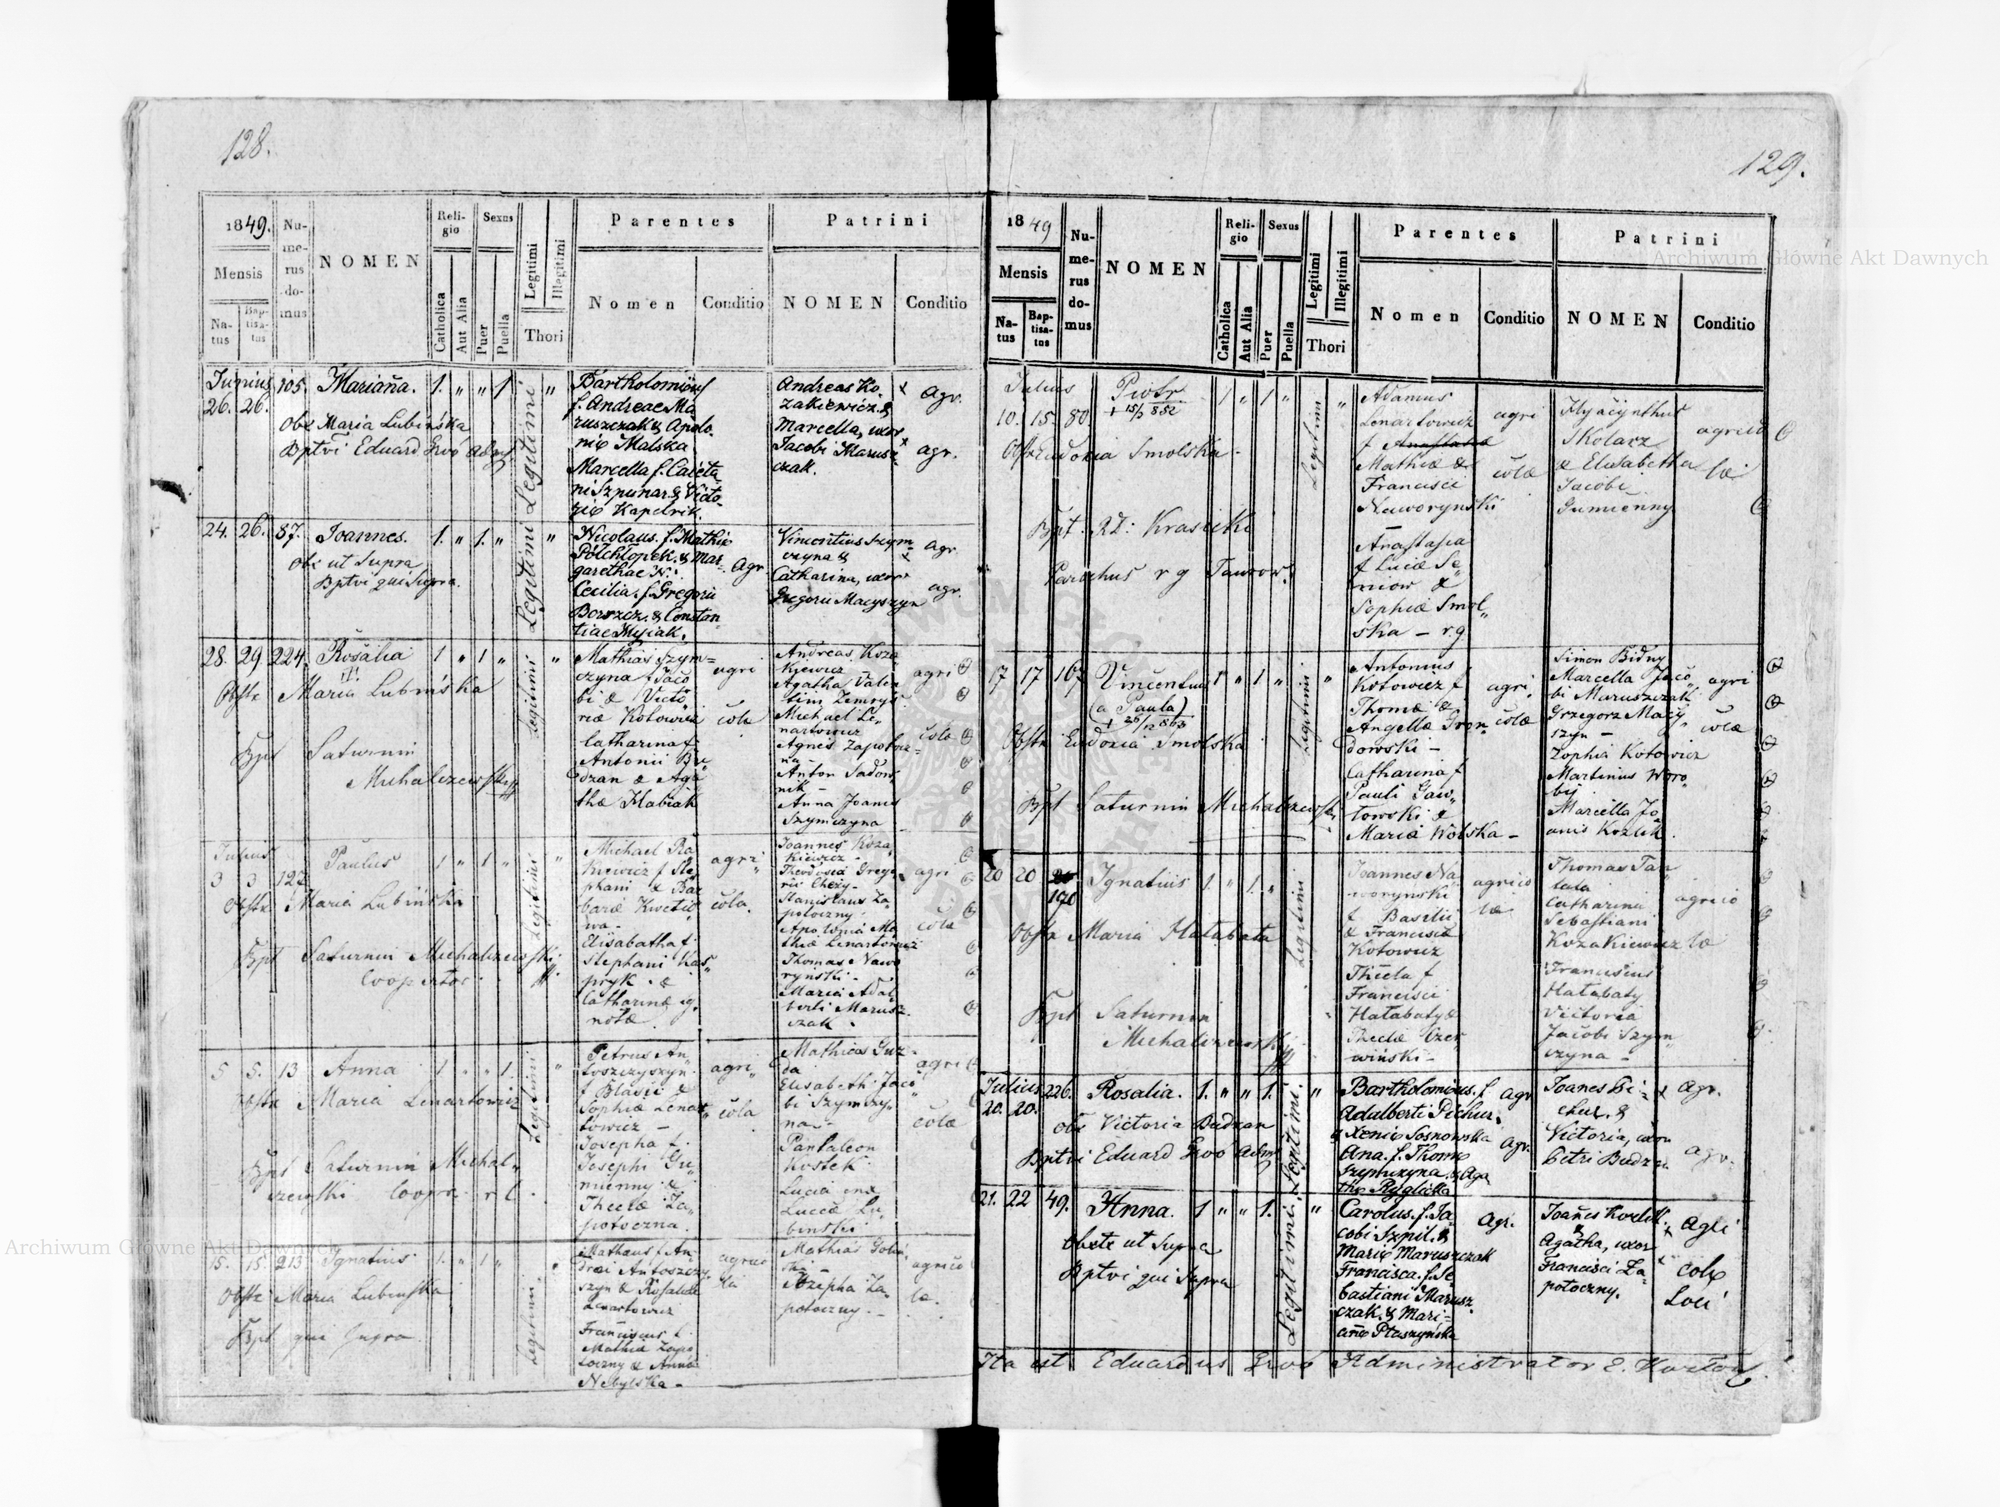 128.
1849.
Mensis
Na-
tus
Bap-
tisa-
tus
Nu-
me-
rus
do-
mus
NOMEN
Reli-
gio
Catholica
Aut Alia
Sexus
Puer
Puella
Legitimi
Illegitimi
Thori
Parentes
Nomen
Conditio
Patrini
NOMEN
Conditio
Junius
26. 26. 105. Marianna. 1. " " 1 "
Obs Maria Lubińska
Bptvi Eduard Gwó Adms
Legitimi
Bartholomäus
f. Andreae Ma
ruszczak & Apolo-
niæ Malska
Marcella f. Caieta-
ni Szpunar & Victo-
riæ Kapelnik.
Andreas Ko-
zakiewicz &
Marcella, uxor
Jacobi Marusz-
czak.
Agr.
agr.
24. 26. 87. Joannes. 1. " 1. " "
Obs ut Supra
Bptvi qui Supra.
Legitimi
Nicolaus. f. Mathiæ
Półchłopek. & Mar-
garethae N:
Cecilia. f. Gregorii
Borszcz. & Constan-
tiae Mysiak.
Agr
Vincentius Szym-
czyna &
Catharina, uxor
Gregorii Macyszyn
agr.
agr.
28. 29. 224. Rosalia 1 " 1 " "
Obstx Maria Lubińska
Bpt Saturnin
Michalczewski
Legitimi
Mathias Szym=
czyna f Jaco
bi & Victo
riæ Kotowicz
Catharina f
Antonii Bu
dzan & Aga
thæ Habiak
agri
colæ
Andreas Koza
kiewicz
Agatha Valen
tini Zemry
Michael Le-
nartowicz
Agnes Zapotocz-
na -
Anton Sadow
nik -
Anna Joanis
Szymczyna
agri
colæ
Julius
3 3 127 Paulus 1 " 1 " "
Obstx Maria Lubińska
Bpt Saturnin Michalczewski
Cooperator
Legitimi
Michael
f Ste
phani & Bar
baræ
Elisabetha f.
Stephani Kas
pryk &
Catharinæ ig
notæ.
agri
cola.
Joannes Koza
kiewicz -
Theodosia Grego
rii
Stanislaus Za
potoczny
Apolonia Ma
thiæ Lenartowicz
Thomas Nawo
ryński -
Maria Adal
berti Marusz
czak -
agri
colæ
5 5. 13 Anna 1 " " 1. "
Obstx Maria Lenartowicz
Bpt Saturnin Michal-
czewski Coopr. r l.
Legitimi
Petrus An
toszczyszyn
f Blasii &
Sophiæ Lenar
towicz -
Josepha f.
Josephi Gu
mienny &
Theclæ Za
potoczna.
agri
cola
Mathias Guz-
da
Elisabeth Jaco
bi Szymczy
na -
Pantaleon
Kostek
Lucia
Lucæ Lu
binski
agri
colæ
15. 15. 213 Ignatius 1. " 1 " "
Obstx Maria Lubinska
Bpt qui Supra
Legitimi
Mathaus f An
dræi Antoszczy
szyn & Rosaliæ
Lenartowicz
Francisca f.
Mathiæ Zapo
toczny & Annæ
Nebylska -
agrico
læ
Mathias
Josepha Za
potoczny. -
agrico
læ.
129.
1849
Mensis
Na-
tus
Bap-
tisa-
tus
Nu-
me-
rus
do-
mus
NOMEN
Reli-
gio
Catholica
Aut Alia
Sexus
Puer
Puella
Legitimi
Illegitimi
Thori
Parentes
Nomen
Conditio
Patrini
NOMEN
Conditio
Julius
10. 15. 80 Piotr. 1 " 1 " "
+ 15/3 852
Obstx Eudoxia Smolska -
Bpt. Krasicki
Parochus r g Taurow.
Legitimi
Adamus
Lenartowicz
f Anastasiæ
Mathiæ &
Francisci
Naworynski
Anastasia
f Lucæ Se
niow &
Sophiæ Smol
ska - r.g
agri
colæ
Hyacynthus
Skolarz
& Elisabetha
Jacobi
Gumienny
agrico
læ
17 17 167 Vincentius 1 " 1 " "
(a Paula)
+ 26/12 863
Obstx Eudoxia Smolska
Bpt Saturnin Michalczewski
Legitimi
Antonius
Kotowicz f
Thomæ &
Angellæ Gron
dowski -
Catharina f
Pauli Gaw
łowski &
Mariæ Wolska -
agri
colæ
Simon Bidny
Marcella Jaco
bi Maruszczak
Grzegorz Macy
szyn -
Zophia Kotowicz
Martinus Woro
bij
Marcella Jo
anis Kozluk.
agri
colæ
20 20 190 Ignatius 1. " 1. " "
Obstx Maria Hałabata
Bpt Saturnin
Michalczewski
Legitimi
Joannes Na
worynski
f Basilii
& Franciscæ
Kotowicz
Thecla f
Francisci
Hałabaty &
Theclæ Czer
wiński -
agrico
læ
Thomas Ta
tata
Catharina
Sebastiani
Kozakiewicz
Franciscus
Hałabaty
Victoria
Jacobi Szym
czyna -
agrico
læ
Julius
20. 20. 226. Rosalia. 1. " " 1. "
obs Victoria Budzan
Bptvi Eduard Gwó Adms
Legitimi.
Bartholomäus. f
Adalberti Pichur.
& Xeniæ Sosnowska
Ana. f. Thomæ
Szymczyna. & Aga
thæ Ryglicka
Agr
Agr.
Joanes Pi-
chur. &
Victoria, uxor
Petri Budzan.
Agr.
agr.
21. 22 49. Anna. 1 " " 1. "
Obstx ut Supra
Bptvi qui Supra
Legitimi
Carolus. f. Ja
cobi Szpil. &
Mariæ Maruszczak
Francisca. f. Se
bastiani Marusz-
czak. & Mari-
anæ Ptaszyńska
Agr.
Joanes Kozluk
&
Agatha, uxor
Francisci Za-
potoczny.
Agri
colæ
Loci
Ita est Eduardus Gwó Administrator E.
Archiwum Główne Akt Dawnych
Archiwum Główne Akt Dawnych